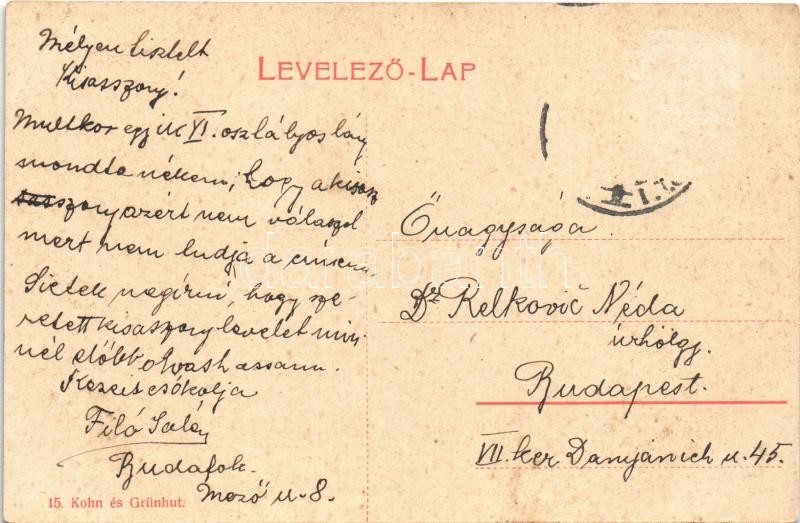 Mélyen tisztelt
Kisasszony!
LEVELEZŐ-LAP
Multkor egyik VI. osztályos lány
mondta nékem, hogy a kisasz
szony azért nem válaszol
mert nem tudja a címem.
Sietek megírni, hogy sze-
retett kisaszony levelét min-
nél előbb olvashassam.
Kezeit csókolja
Filó
Budafok.
Mező u. 8.
Őnagysága
Dr Relkovič Néda
úrhölgy.
Budapest.
VII. ker Damjanich u. 45.
15. Kohn és Grünhut.
darabanth